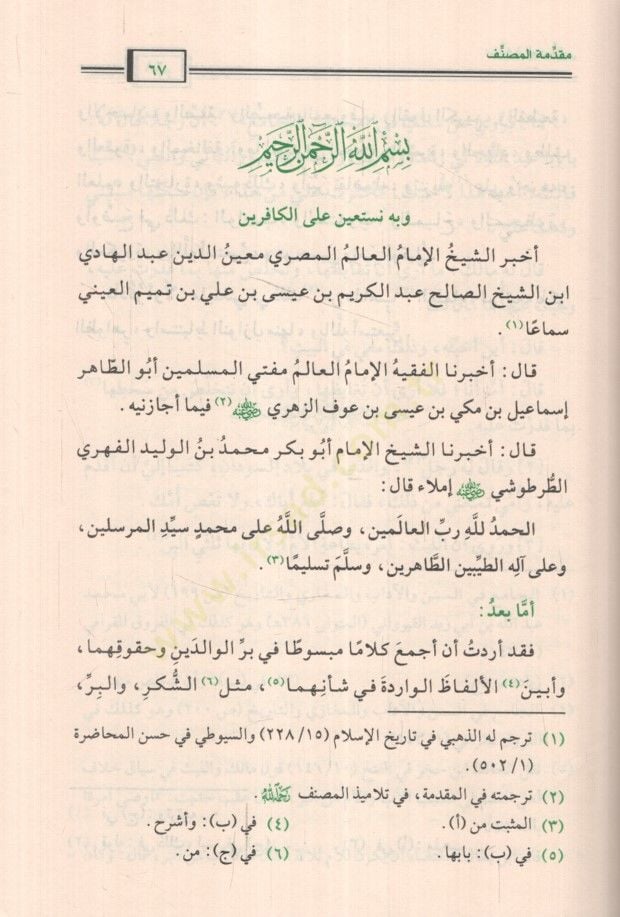 مقدِّمة المصنِّف
٦٧
بِسْمِ اللَّهِ الرَّحْمَنِ الرَّحِيمِ
وبه نستعين على الكافرين
أخبر الشيخُ الإمامُ العالمُ المصري معينُ الدين عبد الهادي
ابن الشيخ الصالح عبد الكريم بن عيسى بن علي بن تميم العيني
سماعًا(١).
قال: أخبرنا الفقيهُ الإمامُ العالمُ مفتي المسلمين أبُو الطَّاهر
إسماعيل بن مكي بن عيسى بن عوف الزهري ﵁(٢) فيما أجازنيه.
قال: أخبرنا الشيخ الإمام أبُو بكر محمدُ بنُ الوليد الفهري
الطُّرطوشي ﵁ إملاء قال:
الحمدُ للَّهِ ربِّ العالَمين، وصلَّى اللَّهُ على محمدٍ سيِّدِ المرسلين،
وعلى آلِه الطيِّبين الطَّاهرين، وسلَّمَ تسليمًا(٣).
أمَّا بعدُ:
فقد أردتُ أن أجمعَ كلامًا مبسوطًا في برِّ الوالدَينِ وحقوقِهما،
وأبينَ(٤) الألفاظَ الواردةَ في شأنِهما(٥)، مثل(٦) الشُّكرِ، والبِرِّ،
(١) ترجم له الذهبي في تاريخ الإسلام (١٥/ ٢٢٨) والسيوطي في حسن المحاضرة
(١/ ٥٠٢).
(٢) ترجمته في المقدمة، في تلاميذ المصنف ﵀.
(٣) المثبت من (أ). (٤) في (ب): وأشرح.
(٥) في (ب): بابها. (٦) في (ج): من.